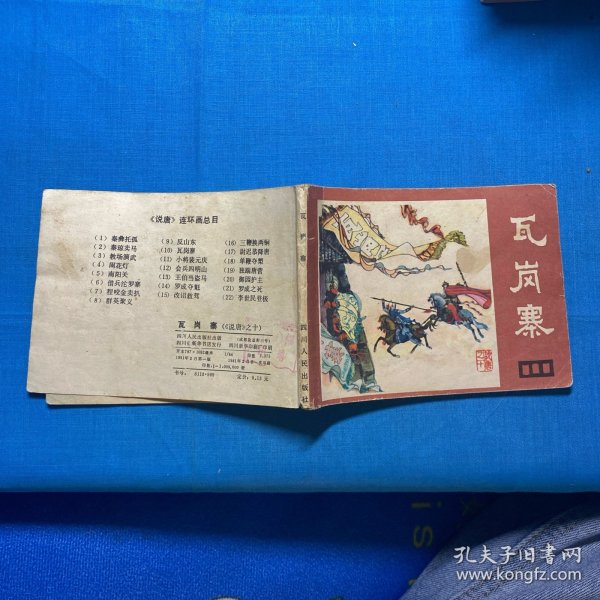 《说唐》连环画总目
(1) 秦彝托孤
(2) 秦琼卖马
(3) 教场演武
(4) 闹花灯
(5) 南阳关
(6) 借兵沱罗寨
(7) 程咬金卖扒
(8) 群英聚义
(9) 反山东
(10) 瓦岗寨
(11) 小将裴元庆
(12) 会兵四明山
(13) 王伯当盗马
(14) 罗成夺魁
(15) 改诏救驾
(16) 三鞭换两锏
(17) 尉迟恭降唐
(18) 单鞭夺槊
(19) 独踹唐营
(20) 御园护主
(21) 罗成之死
(22) 李世民登极
瓦岗寨 (《说唐》之十)
四川人民出版社出版
四川省新华书店发行
1981年2月第一版
书号：8118·909
定价：0.13元
瓦岗寨
四川人民出版社
瓦岗寨
说唐之十
孔夫子旧书网
www.kongfz.com